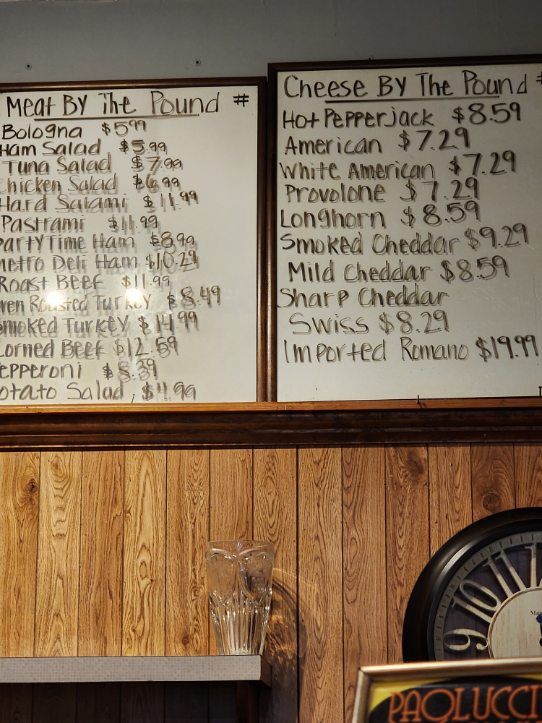 Meat By The Pound #
Bologna $5.99
Ham Salad $5.99
Tuna Salad $7.99
Chicken Salad $6.99
Hard Salami $11.99
Pastrami $11.99
Party Time Ham $8.99
Metro Deli Ham $10.29
Roast Beef $11.99
ven Roasted Turkey $8.49
Smoked Turkey $14.99
Corned Beef $12.59
epperoni $8.39
otato Salad, $4.99
Cheese By The Pound #
Hot Pepperjack $8.59
American $7.29
White American $7.29
Provolone $7.29
Longhorn $8.59
Smoked Cheddar $9.29
Mild Cheddar $8.59
Sharp Cheddar
Swiss $8.29
Imported Romano $19.99
9 10 11
PAOLUCCI